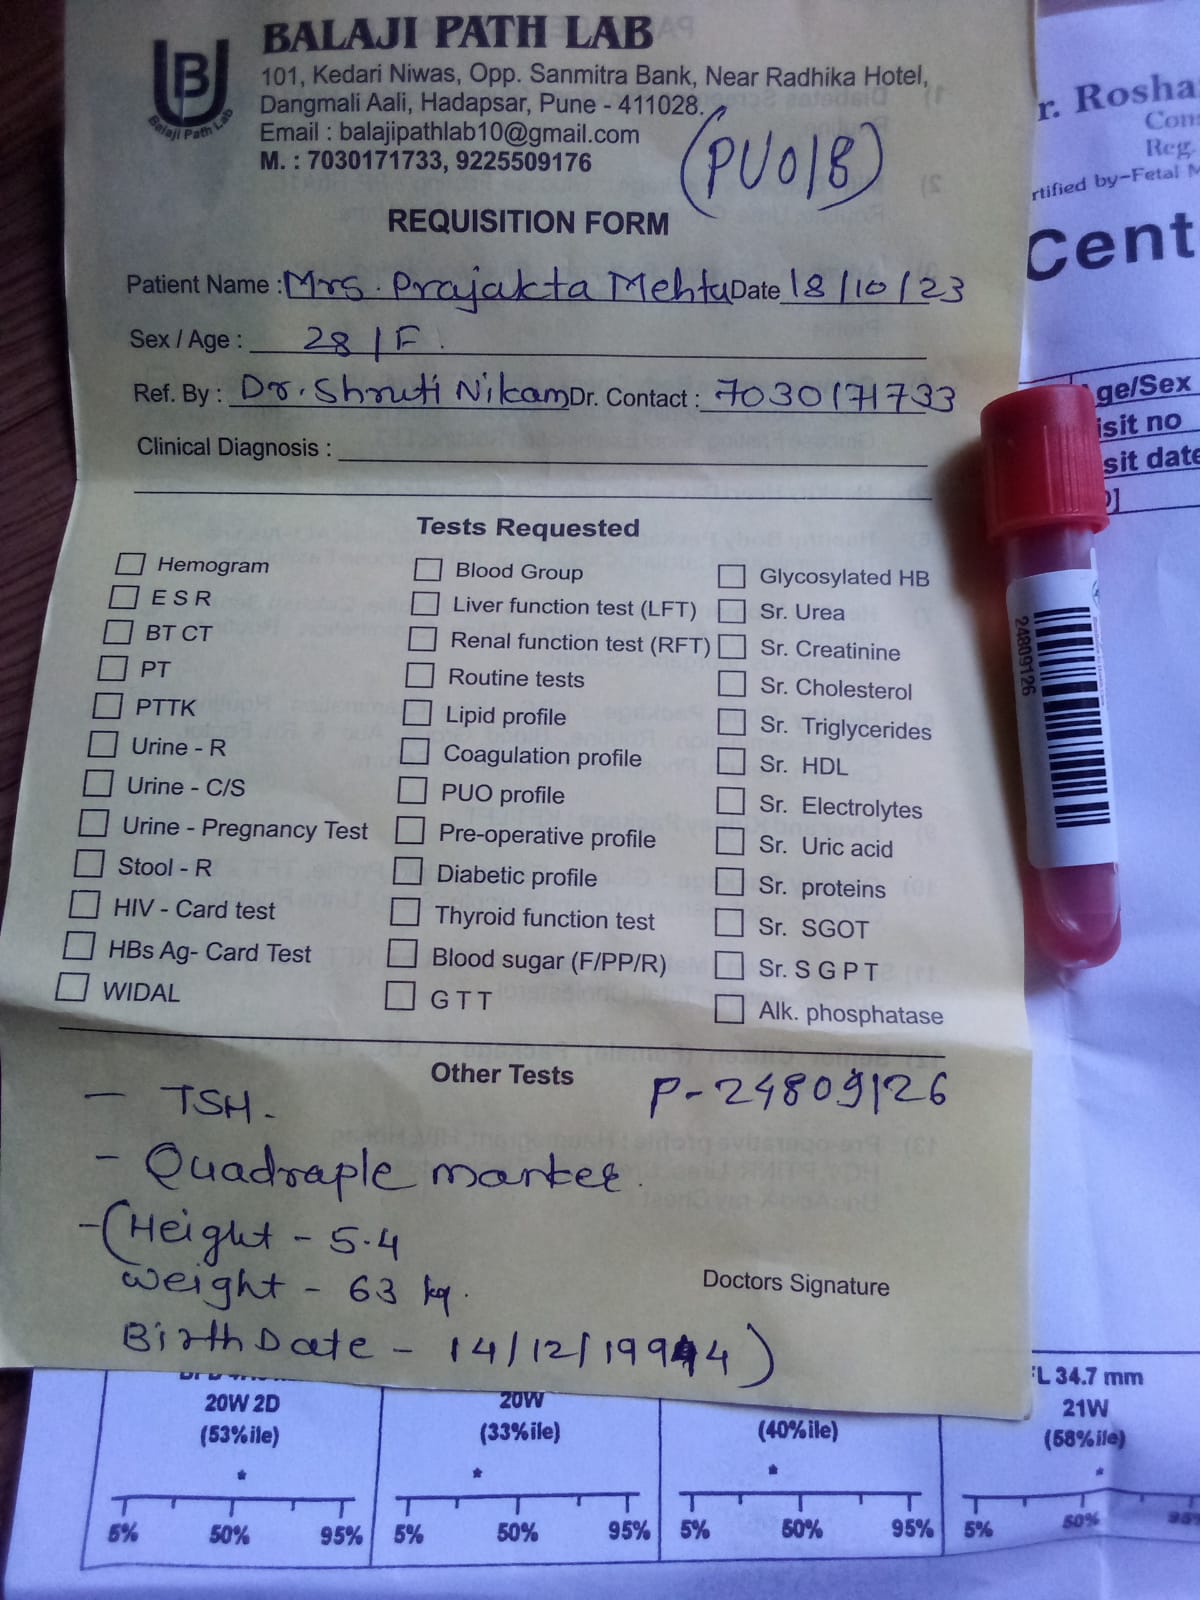 BALAJI PATH LAB
Balaji Path Lab
101, Kedari Niwas, Opp. Sanmitra Bank, Near Radhika Hotel,
Dangmali Aali, Hadapsar, Pune - 411028.
Email : balajipathlab10@gmail.com
M. : 7030171733, 9225509176
(PUO/B)
REQUISITION FORM
Patient Name : Mrs. Prajakta Mehta Date 18/10/23
Sex / Age : 28 / F.
Ref. By : Dr. Shruti Nikam Dr. Contact : 7030171733
Clinical Diagnosis :
Tests Requested
Hemogram
E S R
BT CT
PT
PTTK
Urine - R
Urine - C/S
Urine - Pregnancy Test
Stool - R
HIV - Card test
HBs Ag- Card Test
WIDAL
Blood Group
Liver function test (LFT)
Renal function test (RFT)
Routine tests
Lipid profile
Coagulation profile
PUO profile
Pre-operative profile
Diabetic profile
Thyroid function test
Blood sugar (F/PP/R)
G T T
Glycosylated HB
Sr. Urea
Sr. Creatinine
Sr. Cholesterol
Sr. Triglycerides
Sr. HDL
Sr. Electrolytes
Sr. Uric acid
Sr. proteins
Sr. SGOT
Sr. S G P T
Alk. phosphatase
Other Tests
P-24809126
- TSH -
- Quadraple marker.
- (Height - 5.4
weight - 63 kg.
Birth Date - 14/12/1994)
Doctors Signature
r. Rosha
Cons
Reg.
rtified by-Fetal M
Cent
ge/Sex
isit no
sit date
24809126
20W 2D
(53%ile)
5% 50% 95%
20W
(33%ile)
5% 50% 95%
(40%ile)
5% 50% 95%
FL 34.7 mm
21W
(58%ile)
5% 50% 95%